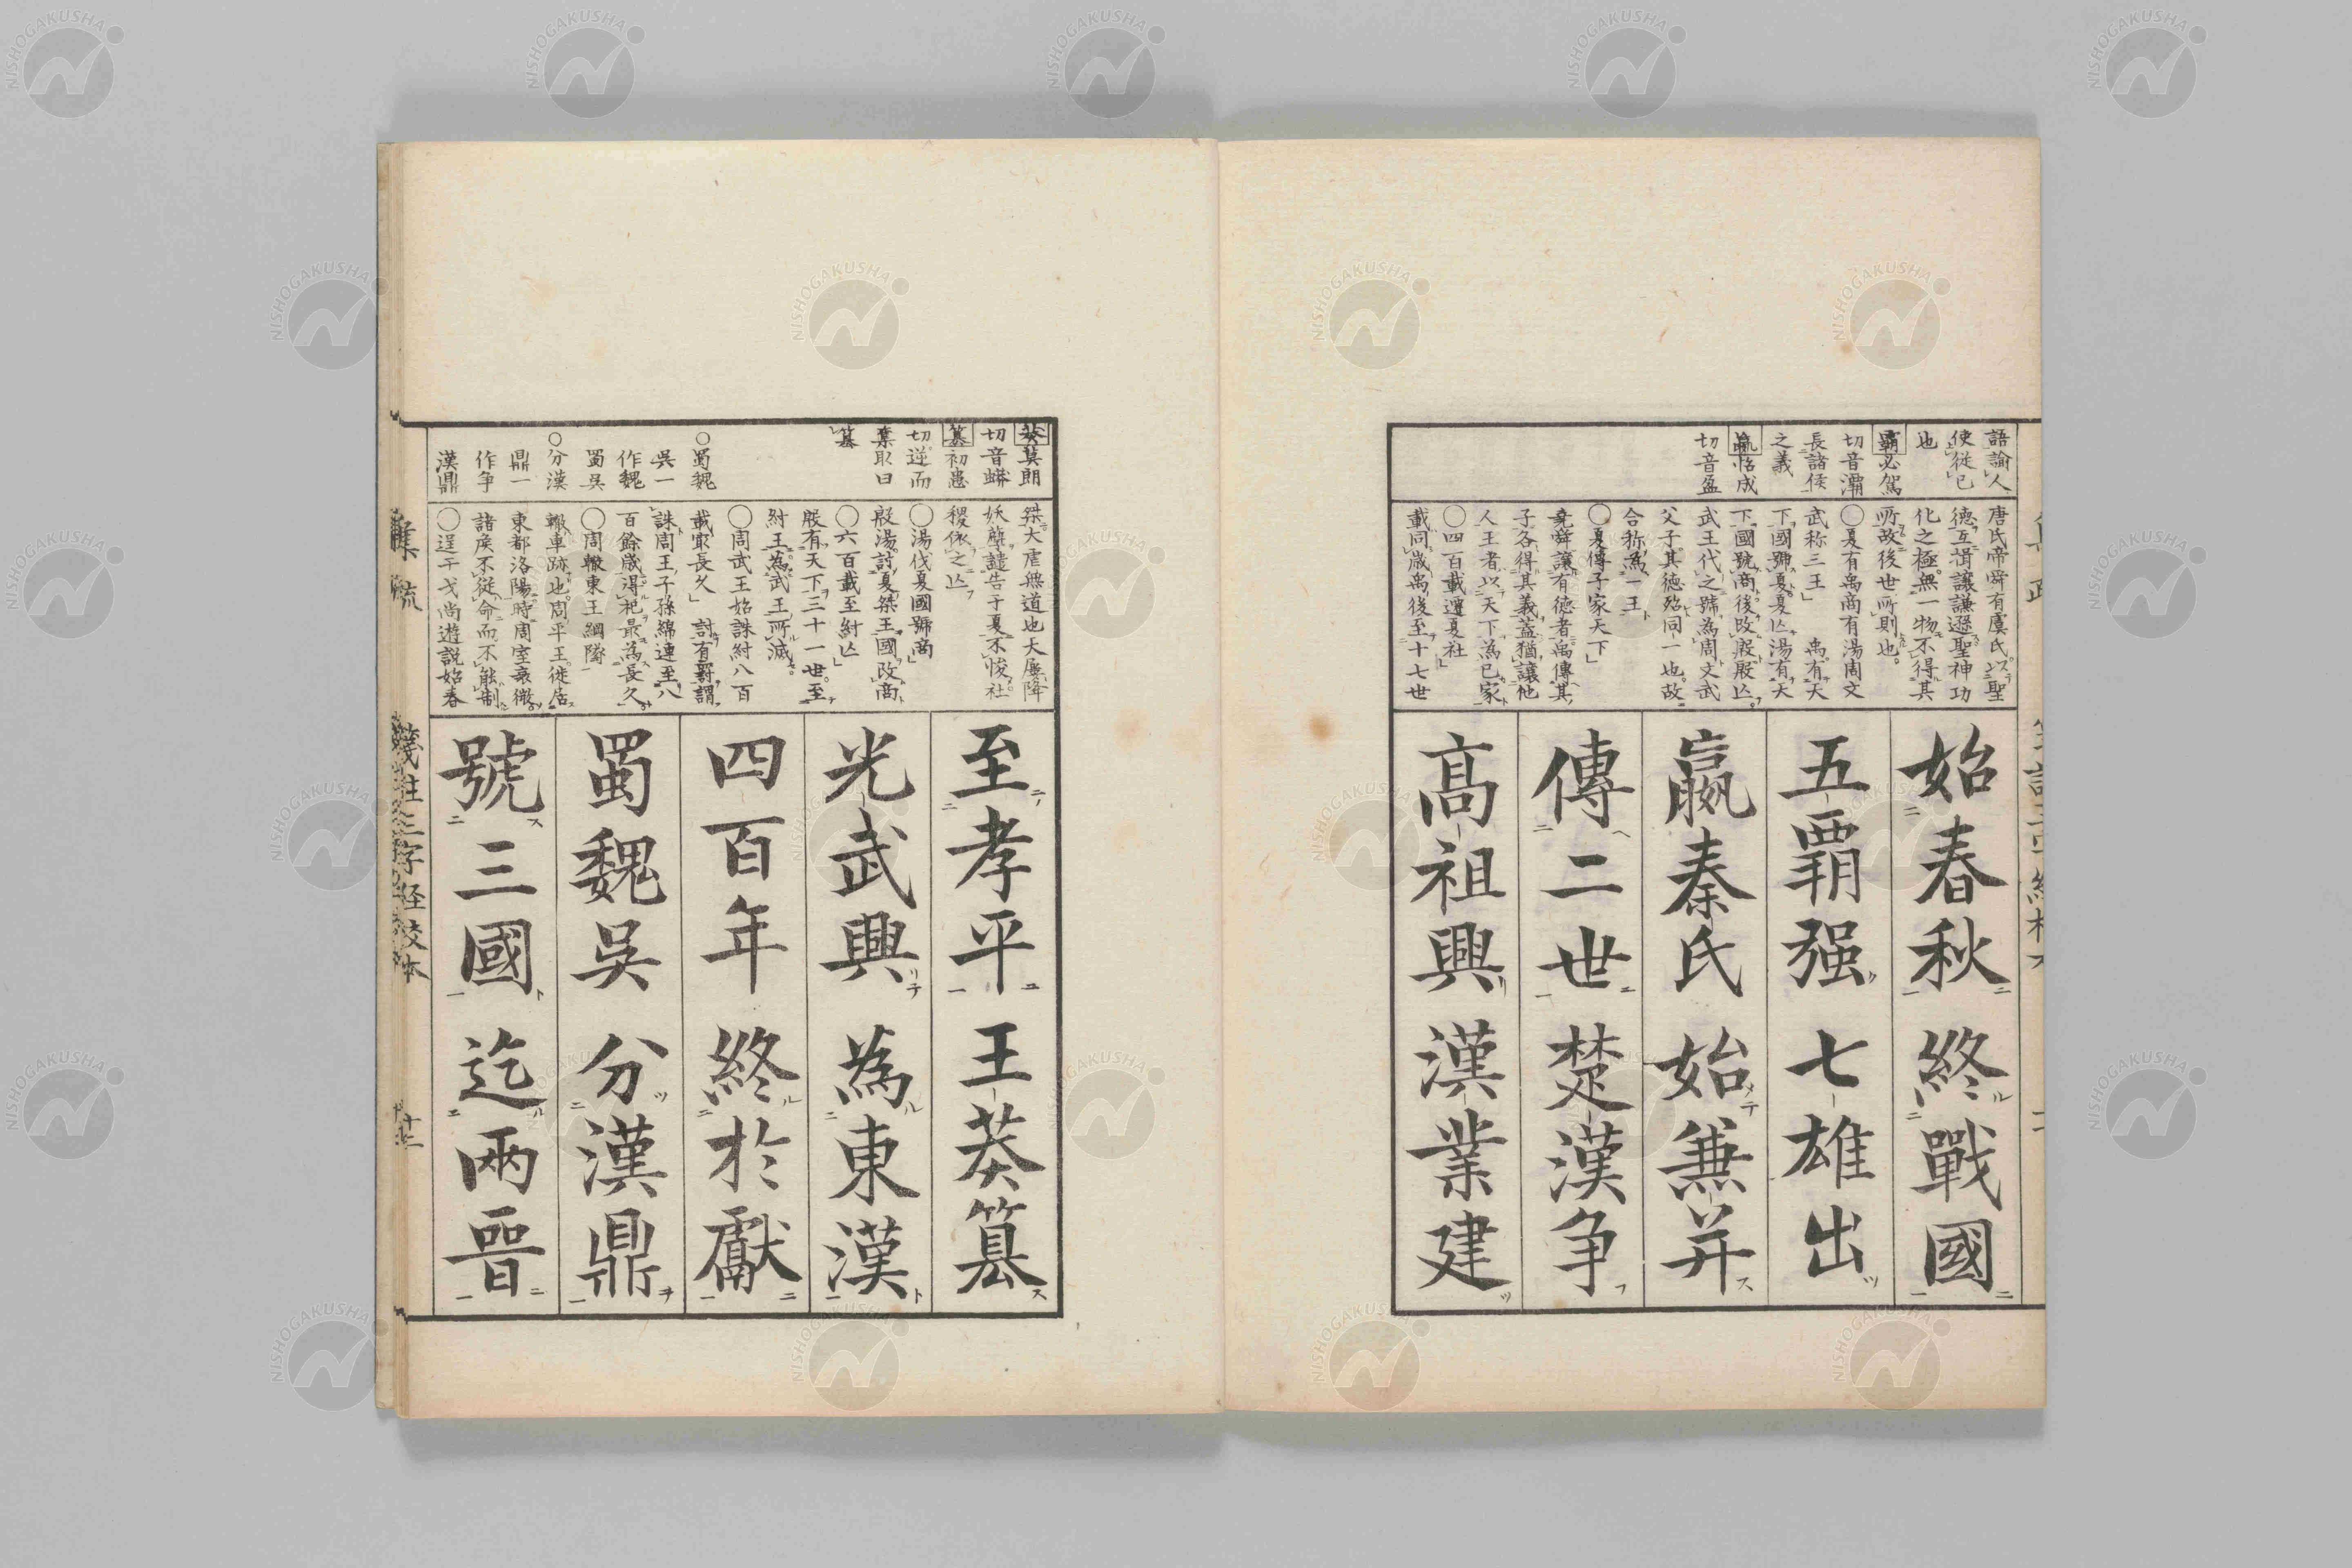 語諭人
使從已
也
霸必駕
切音灞
長諸侯
之義
嬴怡成
切音盈
唐氏帝舜有虞氏以聖
德互揖讓謙遜聖神功
化之極無一物不得其
所故後世所則也
〇夏有禹商有湯周文
武称三王 禹有天
下國號夏夏亾湯有天
下國號商後改殷殷亾
武王代之號為周文武
父子其德殆同一也故
合称為一王
〇夏傳子家天下
堯舜讓有德者禹傳其
子各得其義蓋猶讓他
人王者以天下為已家
〇四百載遷夏社
載同歲禹後至十七世
始春秋 終戰國
五霸强 七雄出
嬴秦氏 始兼并
傳二世 楚漢争
高祖興 漢業建
莽莫朗
切音蟒
篡初患
切逆而
棄取曰
篡
〇蜀魏
吳一
作魏
蜀吳
〇分漢
鼎一
作争
漢鼎
桀大虐無道也大屢降
妖孽譴告于夏不悛社
稷依之亾
〇湯伐夏國號商
殷湯討夏桀王國改商
〇六百載至紂亾
殷有天下三十一世至
紂王為武王所滅
〇周武王始誅紂八百
載冣長久 討有罪謂
誅周王子孫綿連至八
百餘歲得祀最為長久
〇周轍東王綱隊
轍車跡也周平王徙居
東都洛陽時周室衰微
諸侯不從命而不能制
〇逞干戈尚遊説始春
至孝平 王莽篡
光武興 為東漢
四百年 終於獻
蜀魏吳 分漢鼎
號三國 迄兩晉
箋註三字経校本
NISHOGAKUSHA